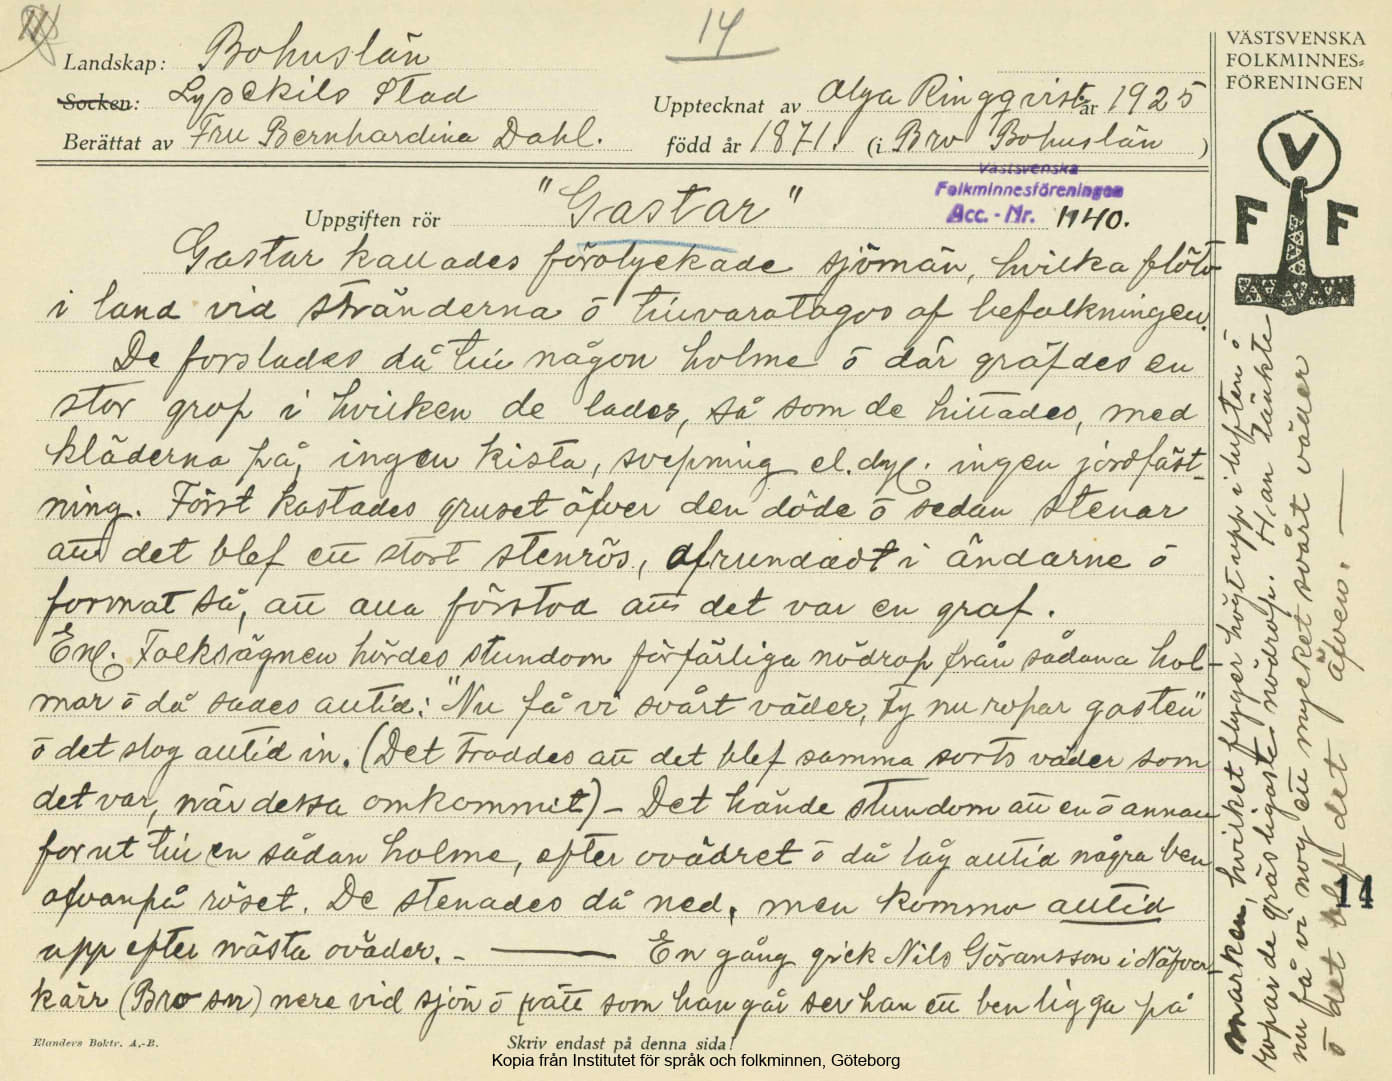 14
Landskap: Bohuslän
Socken: Lysekils Stad
Upptecknat av Olga Ringqvist år 1925
Berättat av Fru Bernhardina Dahl.
född år 1871. (i Bro Bohuslän )
VÄSTSVENSKA
FOLKMINNES=
FÖRENINGEN
V
F F
Västsvenska
Folkminnesföreningen
Acc. - Nr. 1140.
Uppgiften rör "Gastar"
Gastar kallades förolyckade sjömän, hvilka flöto
i land vid stränderna o tillvaratagos af befolkningen.
De forslades då till någon holme o där gräfdes en
stor grop i hvilken de lades, så som de hittades, med
kläderna på, ingen kista, svepning el. dyl. ingen jordfäst-
ning. Först kastades gruset öfver den döde o sedan stenar
att det blef ett stort stenrös, afrundadt i ändarne o
format så, att alla förstod att det var en graf.
Enl. Folksägnen hördes stundom förfärliga nödrop från sådana hol-
mar o då sades alltid: "Nu få vi svårt väder, ty nu ropar gasten"
o det slog alltid in. (Det troddes att det blef samma sorts väder som
det var, när dessa omkommit) - Det hände stundom att en o annan
for ut till en sådan holme, efter ovädret o då låg alltid några ben
ofvanpå röset. De stenades då ned, men kommo alltid
upp efter nästa oväder. - En gång gick Nils Göransson i Näfver-
kärr (Bro sn) nere vid sjön o rätt som han går ser han ett ben ligga på
marken, hvilket flyger högt upp i luften o
ropar de gräsligaste nödrop. Han tänkte
nu få vi nog ett mycket svårt väder
o det blef det äfven. -
14
Elanders Boktr. A.-B.
Skriv endast på denna sida!
Kopia från Institutet för språk och folkminnen, Göteborg